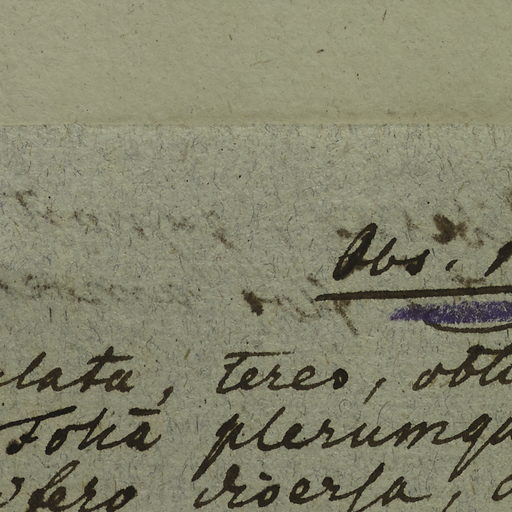 Obs.
lata, teres, obtu
Folia plerumqu
fero diversa,